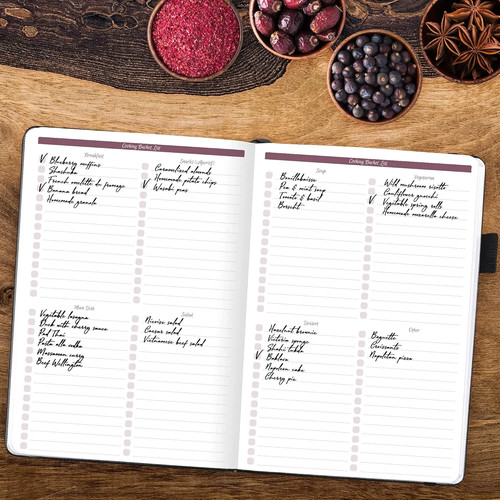 Cooking Bucket List
Breakfast
Blueberry muffins
Shashuka
French omelette du fromage
Banana bread
Homemade granola
Snacks (Aperitif)
Caramelised almonds
Homemade potato chips
Wasabi peas
Main Dish
Vegetable lasagna
Duck with cherry sauce
Pad Thai
Pasta alla vodka
Massaman curry
Beef Wellington
Salad
Nicoise salad
Caesar salad
Vietnamese beef salad
Cooking Bucket List
Soup
Bouillabaisse
Pea & mint soup
Tomato & basil
Borscht
Vegetarian
Wild mushroom risotto
Cauliflower gnocchi
Vegetable spring rolls
Homemade mozzarella cheese
Dessert
Hazelnut brownie
Victoria sponge
Shahi tukda
Baklava
Napoleon cake
Cherry pie
Other
Baguette
Croissants
Neapolitan pizza